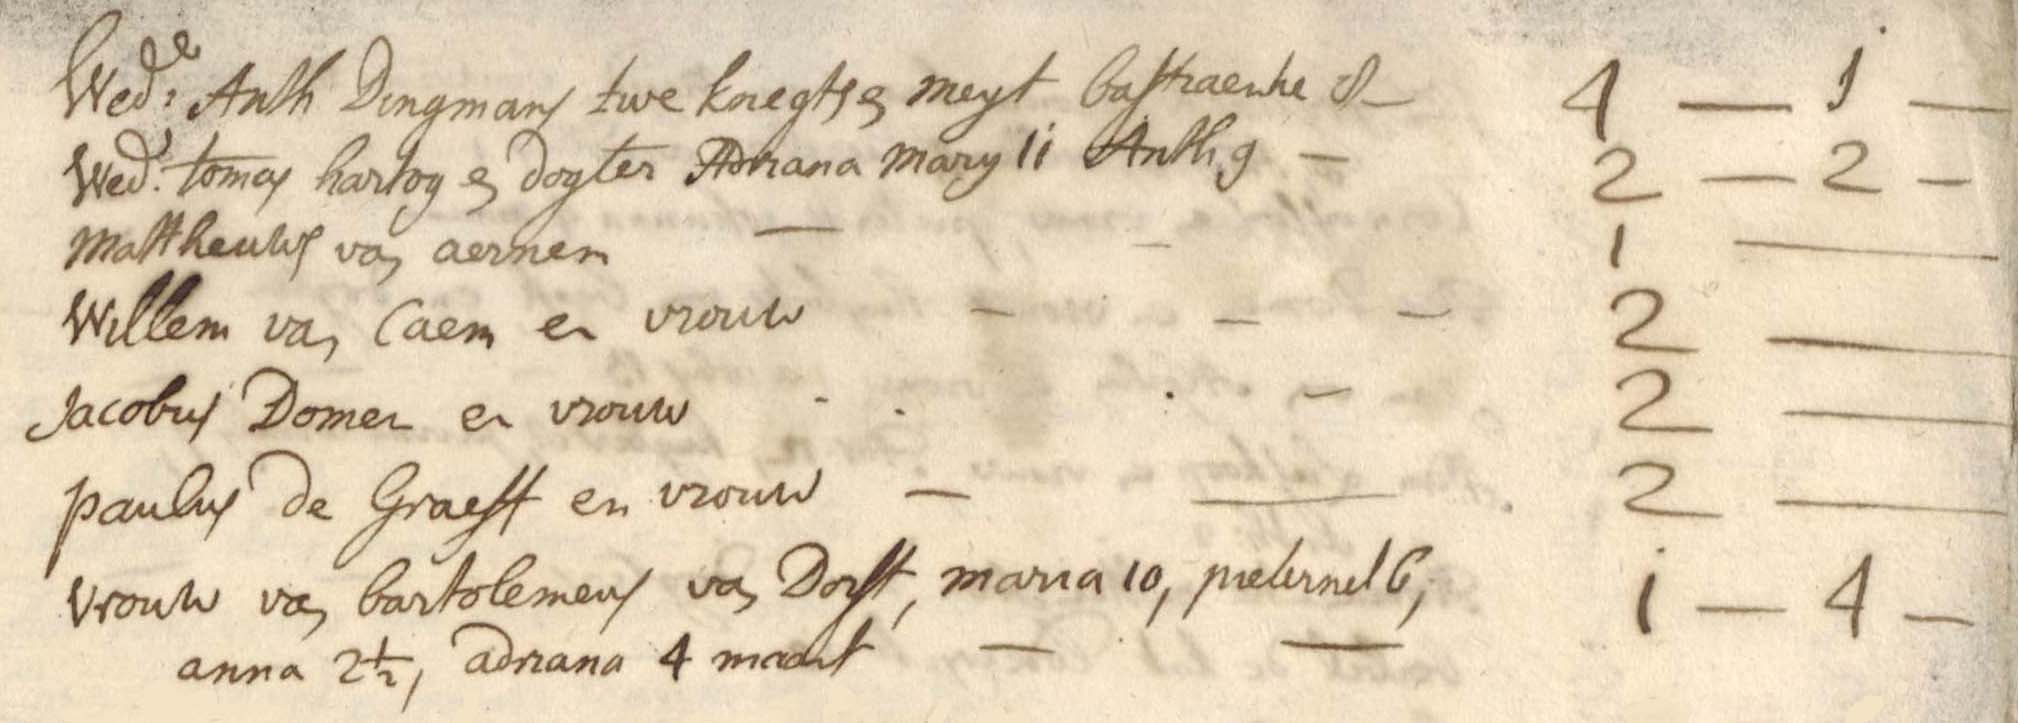 Wed.e Anth Dingmans twe knegts en meyt bastiaenke 8 — 4 — 1 —
Wed.e tomas hartog en dogter Adriana mary 11 Anth 9 — 2 — 2 —
Mattheuws van aernem — — 1 —
Willem van Caem en vrouw — — — 2 —
Jacobus Domen en vrouw - . . — 2 —
paulus de Graeff en vrouw — — 2 —
vrouw van bartolemeus van Dorst, maria 10, pieternel 6, 1 — 4 —
anna 2½, adriana 4 maent — —